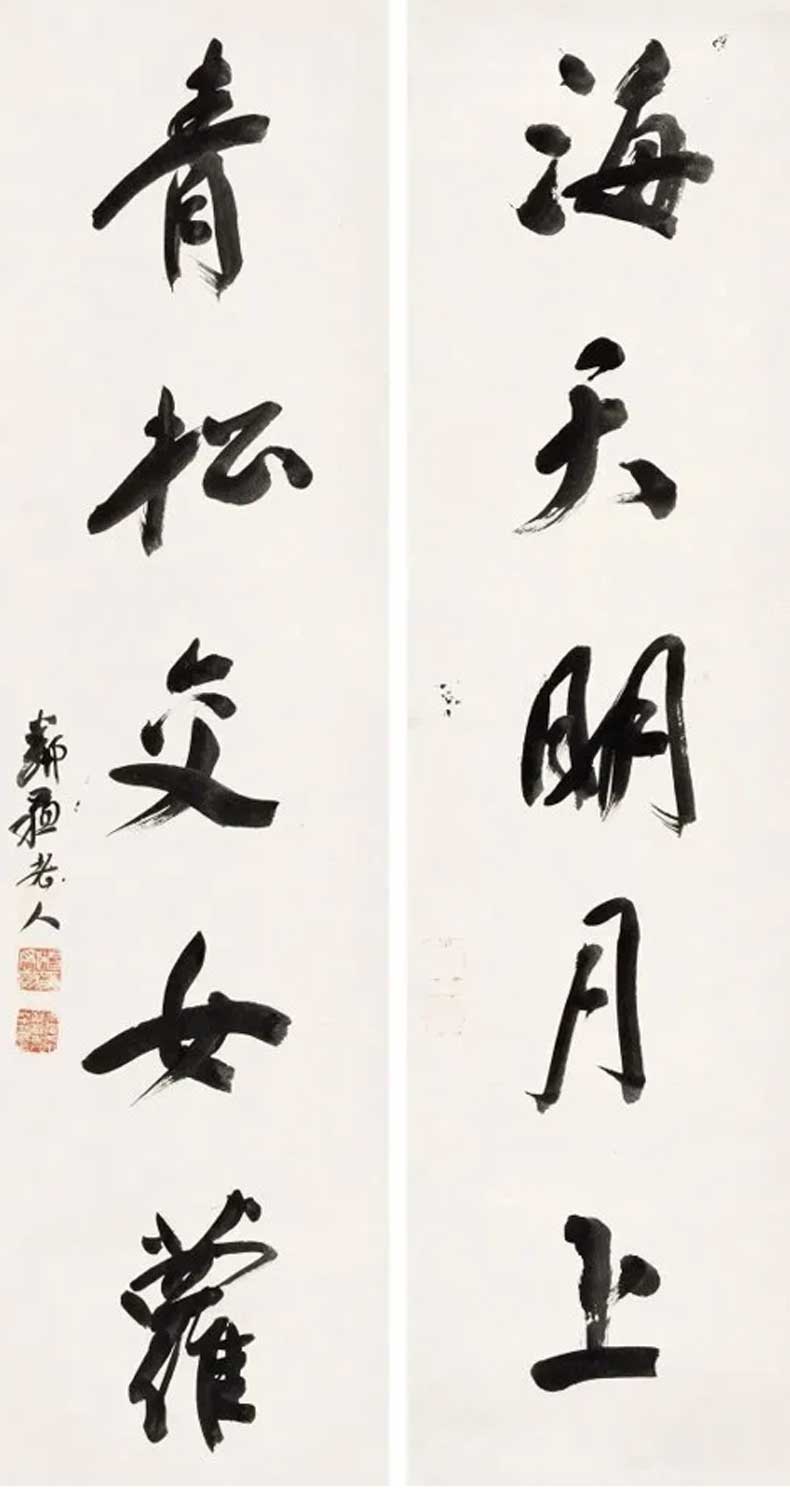 海天明月上
青松交女蘿
鄰蘇老人